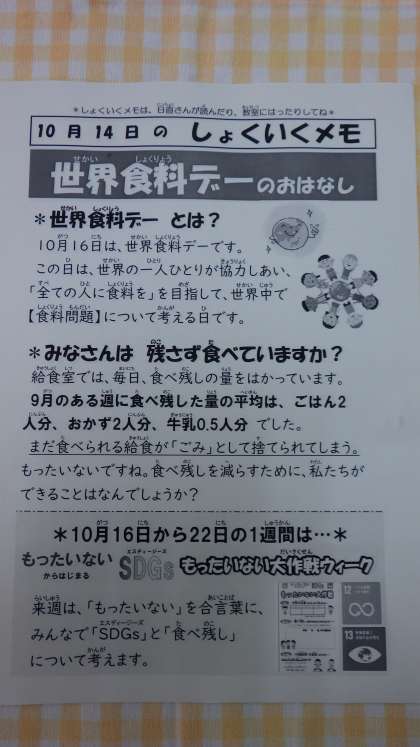 ＊しょくいくメモは、日直さんが読んだり、教室にはったりしてね＊
10月14日の しょくいくメモ
世界食料デーのおはなし
＊世界食料デー とは？
10月16日は、世界食料デーです。
この日は、世界の一人ひとりが協力しあい、
「全ての人に食料を」を目指して、世界中で
【食料問題】について考える日です。
＊みなさんは 残さず食べていますか？
給食室では、毎日、食べ残しの量をはかっています。
9月のある週に食べ残した量の平均は、ごはん2
人分、おかず2人分、牛乳0.5人分 でした。
まだ食べられる給食が「ごみ」として捨てられてしまう。
もったいないですね。食べ残しを減らすために、私たちが
できることはなんでしょうか？
＊10月16日から22日の1週間は…＊
もったいない
からはじまる
SDGs もったいない大作戦ウィーク
来週は、「もったいない」を合言葉に、
みんなで「SDGs」と「食べ残し」
について考えます。
12
13